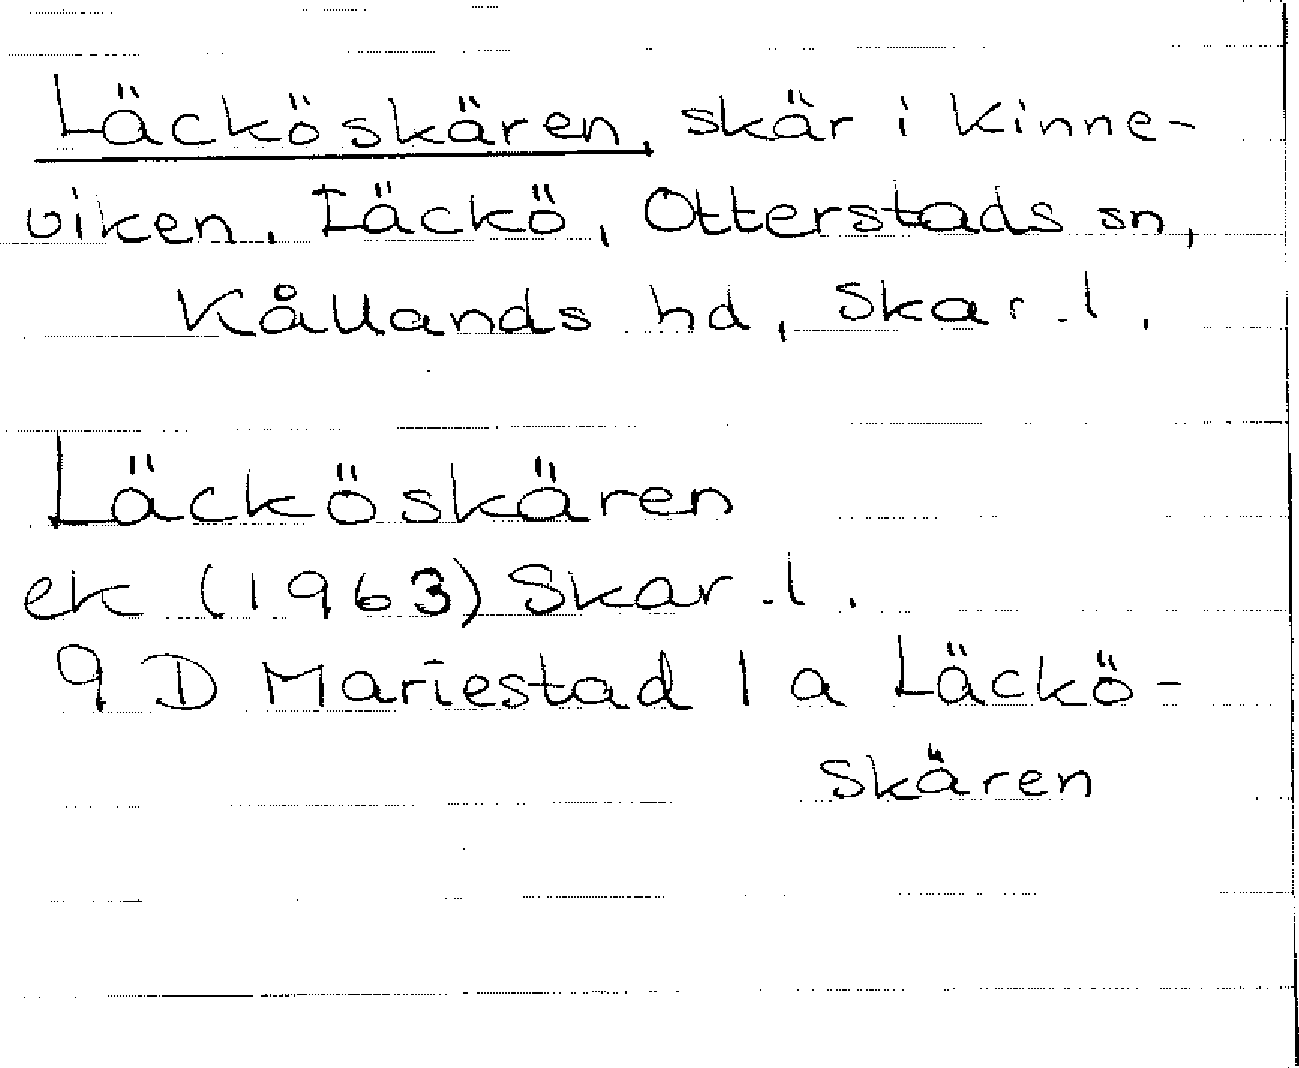 Läcköskären, skär i Kinne-
viken, Läckö, Otterstads sn,
Kållands hd, Skar.l.
Läcköskären
ek (1963) Skar.l.
9 D Mariestad 1 a Läckö-
skären